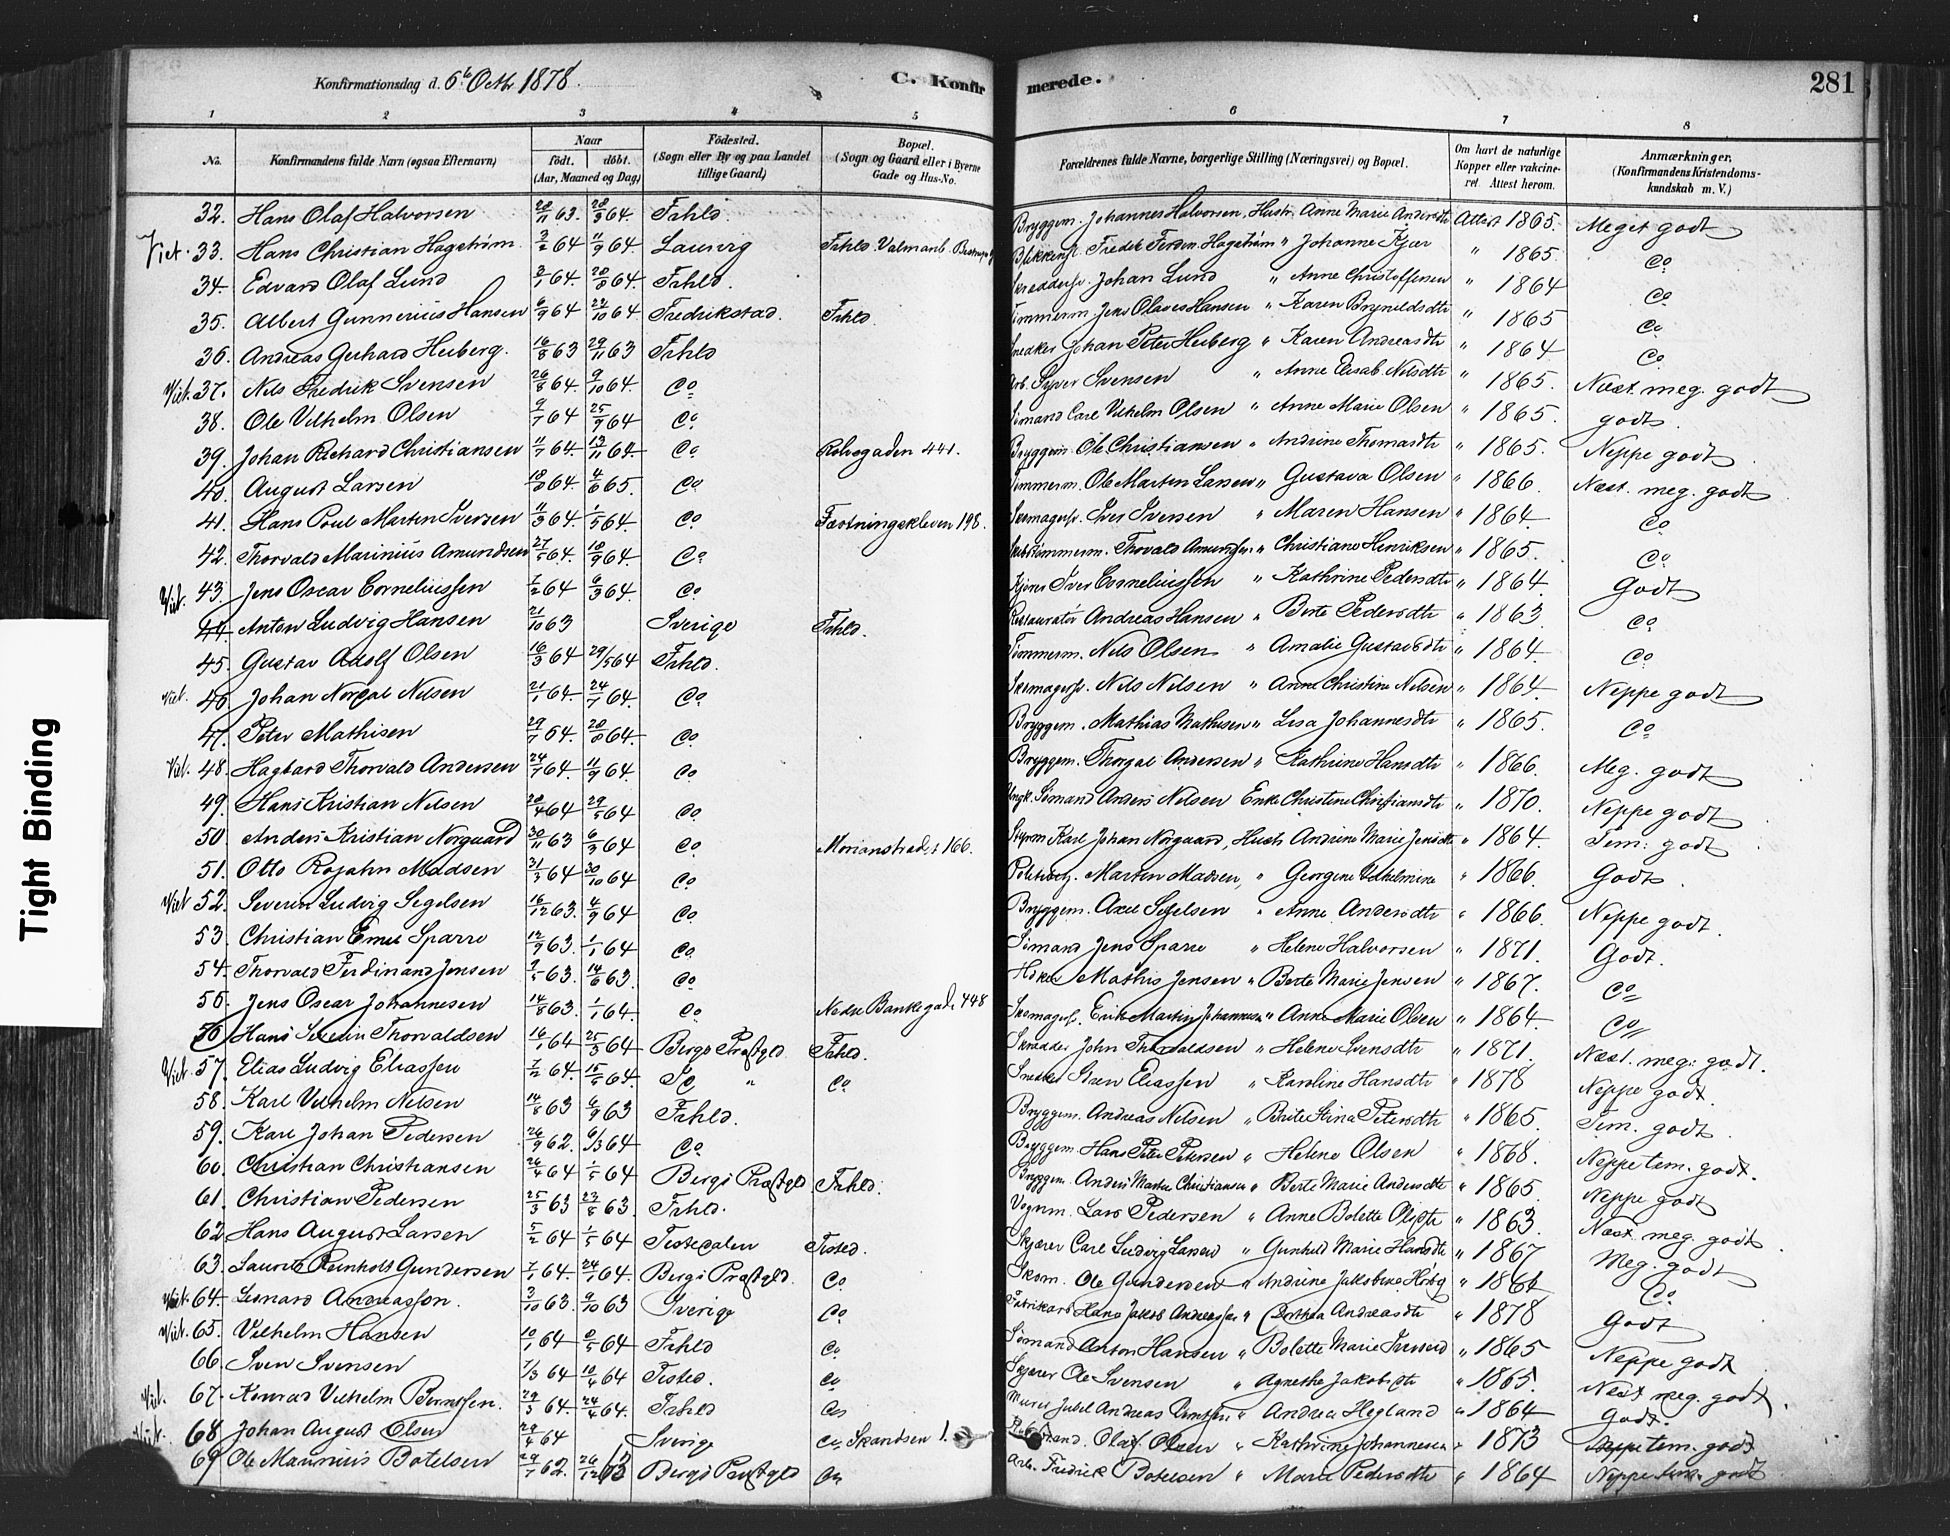 Konfirmationsdag d. 6te Octbr 1878.
C. Konfirmerede.
281
1 2 3 4 5 6 7 8
No.
Konfirmandens fulde Navn (ogsaa Efternavn)
Naar
født. døbt.
(Aar, Maaned og Dag)
Födested.
(Sogn eller By og paa Landet tillige Gaard)
Bopæl.
(Sogn og Gaard eller i Byerne Gade og Hus-No.
Forældrenes fulde Navne, borgerlige Stilling (Næringsvei) og Bopæl.
Om havt de naturlige Kopper eller vakcineret. Attest herom.
Anmærkninger,
(Konfirmandens Kristendomskundskab m. V.)
32. Hans Olaf Halvorsen 63. 64. Frhld. Bryggem. Johannes Halvorsen, Hustr. Anne Marie Andersdtr Attest 1865. Meget godt
Viet. 33. Hans Christian Hagstrøm 64 64. Laurvig Frhld. Johanne Kjær " 1865. Co
34. Edvard Olaf Lund 64. 64. Frhld. Johan Lund " Anne Christoffersen " 1864 Co
35. Albert Gunnerius Hansen 6/9 64 64. Fredrikstad. Frhld. Jens Olaves Hansen " Karen Brynildsdtr " 1865 Co
36. Andreas Gerhard Heiberg. 16/8 63 29/11 63 Frhld Snedker Johan Peter Heiberg " Karen Andreasdtr " 1864 Co
Viet. 37. Nils Fredrik Svensen 26/8 64. 9/10 64. Co Arb. Syver Svensen " Anne Elisab. Nilsdtr " 1865. Næst. meg. godt
38. Ole Vilhelm Olsen 9/7 64 25/9 64 Co Sømand Carl Vilhelm Olsen " Anne Marie Olsen " 1865. godt
39. Johan Richard Christiansen 11/7 64 13/11 64 Co Rolvsgaden 441. Bryggem. Ole Christiansen " Andrine Thomasdtr " 1865. Neppe godt
40. August Larsen 64. 65. Co Tømmerm. Ole Martin Larsen " Gustava Olsen " 1866 Næst. meg. godt
41. Hans Poul Martin Iversen 11/3 64. 1/5 64. Co Fæstningskleven 198. Iver Iversen " Maren Hansen " 1864 Co
42. Thorvald Marinius Amundsen 27/5 64. 64. Co Thovald Amundsen " Christiane Henriksen " 1865. Co
Viet. 43. Jens Oscar Corneliussen 64 6/3 64. Co Iver Corneliussen " Kathrine Pedersdtr " 1864. Godt
44. Anton Ludvig Hansen 21/10 63 Sverige Frhld. Restauratør Andreas Hansen " Berte Pedersdtr " 1863 Co
45. Gustav Adolf Olsen 16/3 64 29/5 64 Frhld. Tømmerm. Nils Olsen " Amalie Gustavsdtr " 1864. Co
Viet. 46. Johan Norval Nilsen 21/1 64. 24/7 64. Co Skomagersv. Nils Nilsen " Anne Christine Nilsen " 1864. Neppe godt
47. Peter Mathisen 64. 64. Co Bryggem. Mathias Mathisen " Lisa Johannesdtr " 1865. Co
Viet. 48. Hagbard Thorvald Andersen 24/7 64. 11/9 64. Co Bryggem. Andersen " Kathrine Hansdtr " 1866. Meg. godt
49. Hans Kristian Nilsen 64 29/5 64 Co Ungk. Sømand Anders Nilsen Enke Christine Christiansdtr " 1870. Neppe godt
50. Anders Kristian Norgaard 30/11 63 6/3 64 Co 166. Styrm Karl Johan Norgaard, Hustr. Andrine Marie Jensdtr " 1864. Tem: godt
51. Otto Rojahn Madsen 31/3 64 30/10 64 Co Martin Madsen, " Georgine Vilhelmine " 1866. Godt.
Viet 52. Severin Ludvig Segelsen 16/12 63. 4/9 64 Co Bryggem. Axel Segelsen " Anne Andersdtr " 1866 Neppe godt.
53. Christian Emil Sparre 12/9 63. 1/1 64 Co Sømand Jens Sparre " Helene Halvorsen " 1871. Godt.
54. Thorvald Ferdinand Jensen 63. 14/6 63. Co Høker Mathis Jensen " Berte Marie Jensen " 1867. Co
55. Jens Oscar Johannesen 14/8 63. 1/1 64. Co Nedre Bankegade 448 Skomagersv. Erik Martin Johannesen " Anne Marie Olsen " 1864. Co
56 Hans Severin Thorvaldsen 16/1 64 25/3 64 Bergs Præstgld Frhld. Skrædder John Thorvaldsen " Helene Svensdtr " 1871. Næst. meg: godt.
Viet. 57. Elias Ludvig Eliassen 7/2 64. 15/5 64. " Co Eliassen " Karoline Hansdtr " 1878 Neppe godt.
58. Karl Vilhelm Nilsen 14/8 63 6/9 63 Frhld. Bryggem. Andreas Nilsen " Brite Stina Petersdtr " 1865. Tem. godt.
59. Karl Johan Pedersen 26/9 62. 6/3 64 Co Bryggem. Hans Peter Petersen " Helene Olsen " 1868. Neppe tem. godt.
60. Christian Christiansen 26/4 64 1/5 64 Bergs Præstgld Frhld. Bryggem. Anders Martin Christiansen " Berte Marie Andersdtr " 1865. Neppe godt
61. Christian Pedersen 25/3 63 63. Frhld. Vognm. Lars Pedersen " Anne Bolette Olsdtr " 1863. Næst. meg. godt
62 Hans August Larsen 5/2 64 1/5 64 Tistedalen Tisted. Skjærer Carl Ludvig Larsen " Gunhild Marie Hansdtr " 1867 Meg. godt
63. Laurits Reinholt Gundersen 7/1 64. 24/1 64. Bergs Præstgld. Co Skom. Ole Gundersen " Andrine Jakobine " 1864 Co
Viet. 64. Leonard Andreassen. 3/10 63. 9/10 63 Sverige Co Fabrikarb Hans Jakob Andreassen " Dorthea Andreasdtr " 1878 Godt
Viet. 65. Vilhelm Hansen 10/1 64. 64 Frhld Co Sømand Anton Hansen " Bolette Marie " 1865 Neppe godt
66. Sven Svensen 7/3 64 10/4 64 Tisted. Co Skjærer Ole Svensen " Agnethe Jakobsdtr " 1865. Næst meg. godt
Viet. 67. Konrad Vilhelm Berntsen. 29/3 64. 24/4 64. Frhld Co Andreas Berntsen " Andrea Hegland " 1864 Godt.
Viet. 68 Johan August Olsen 64 Sverige Co Skandsen 1. Olaf Olsen " Kathrine Johannesen " 1873 tem. godt
69 Ole Maurinius Botelsen 29/7 62. Bergs Præstgld Co Arb. Fredrik Botelsen " Marie Pedersdtr " 1864 Neppe tem. godt
Tight Binding